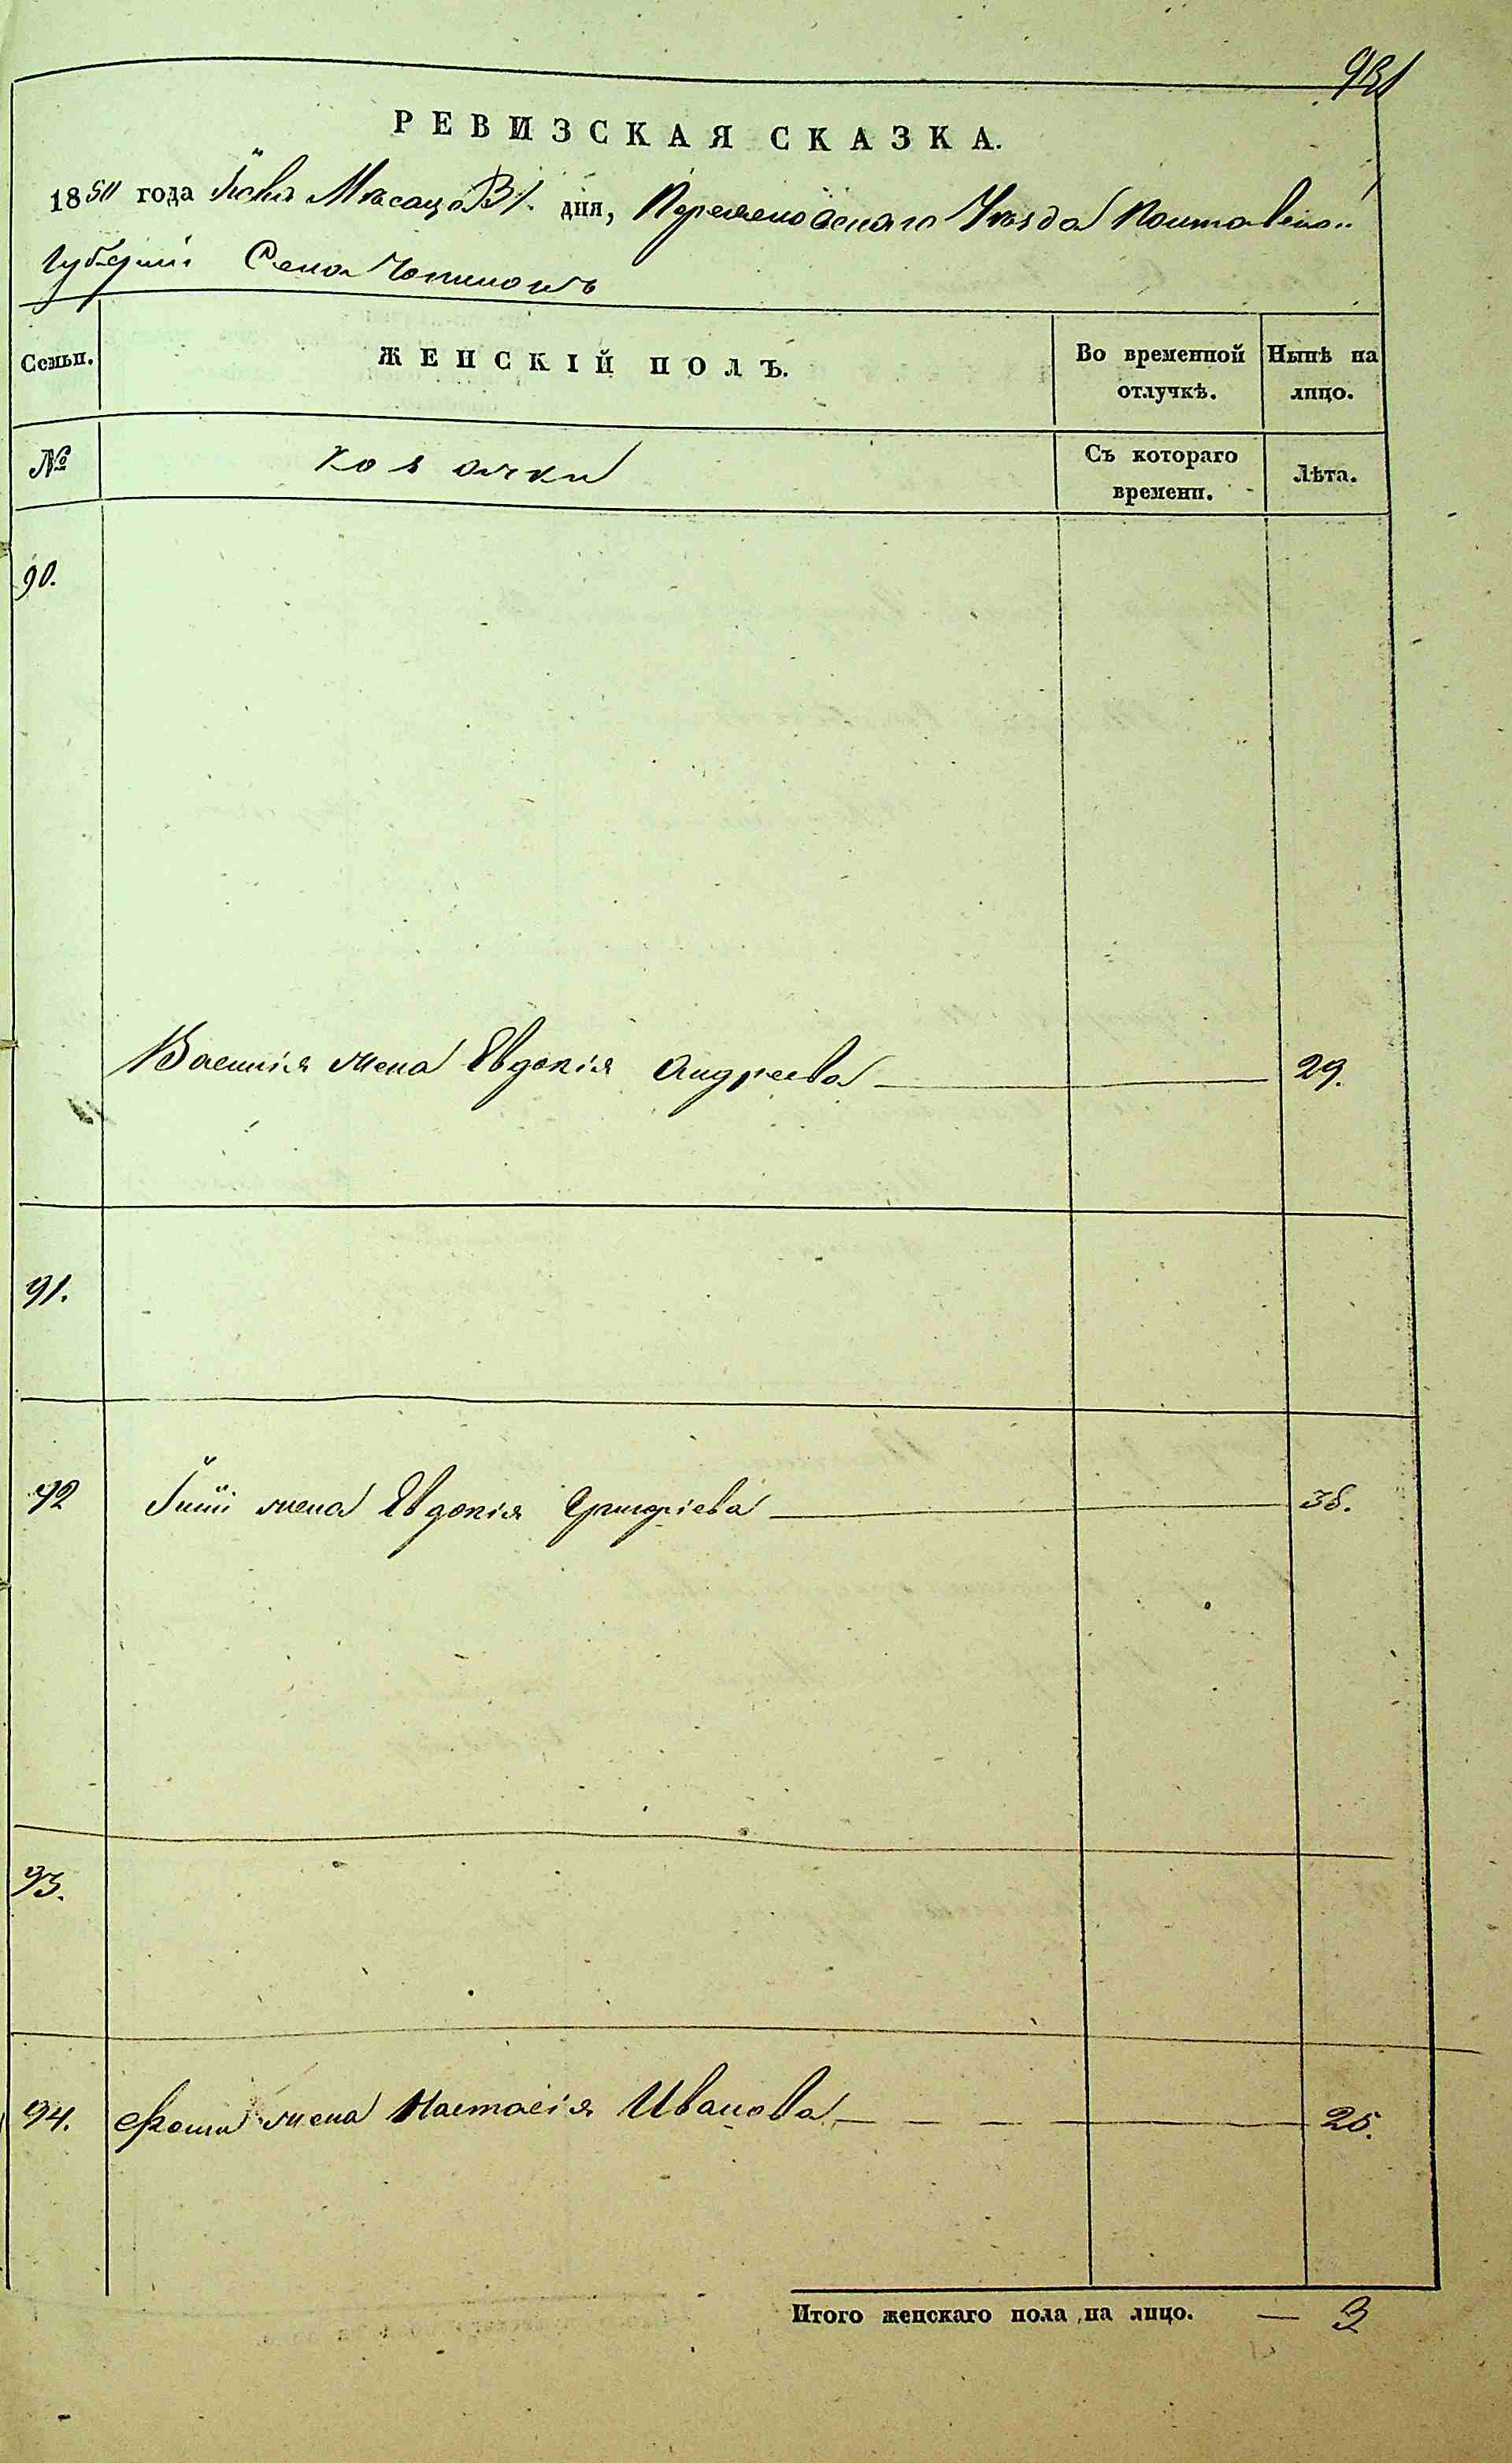 РЕВИЗСКАЯ СКАЗКА.
1850 года Июня Месаца дня, Уезда Полтавской
Губернии Села
Семьи. ЖЕНСКІЙ ПОЛЪ. Во временной отлучкѣ. Нынѣ на лицо.
№ козачки Съ котораго времени. Лѣта.
90.
Василія жена Евдокія Андреева 29.
91.
92 жена Евдокія Григоріева
93.
94. жена Настасія Иванова 25.
Итого женскаго пола на лицо. — 3